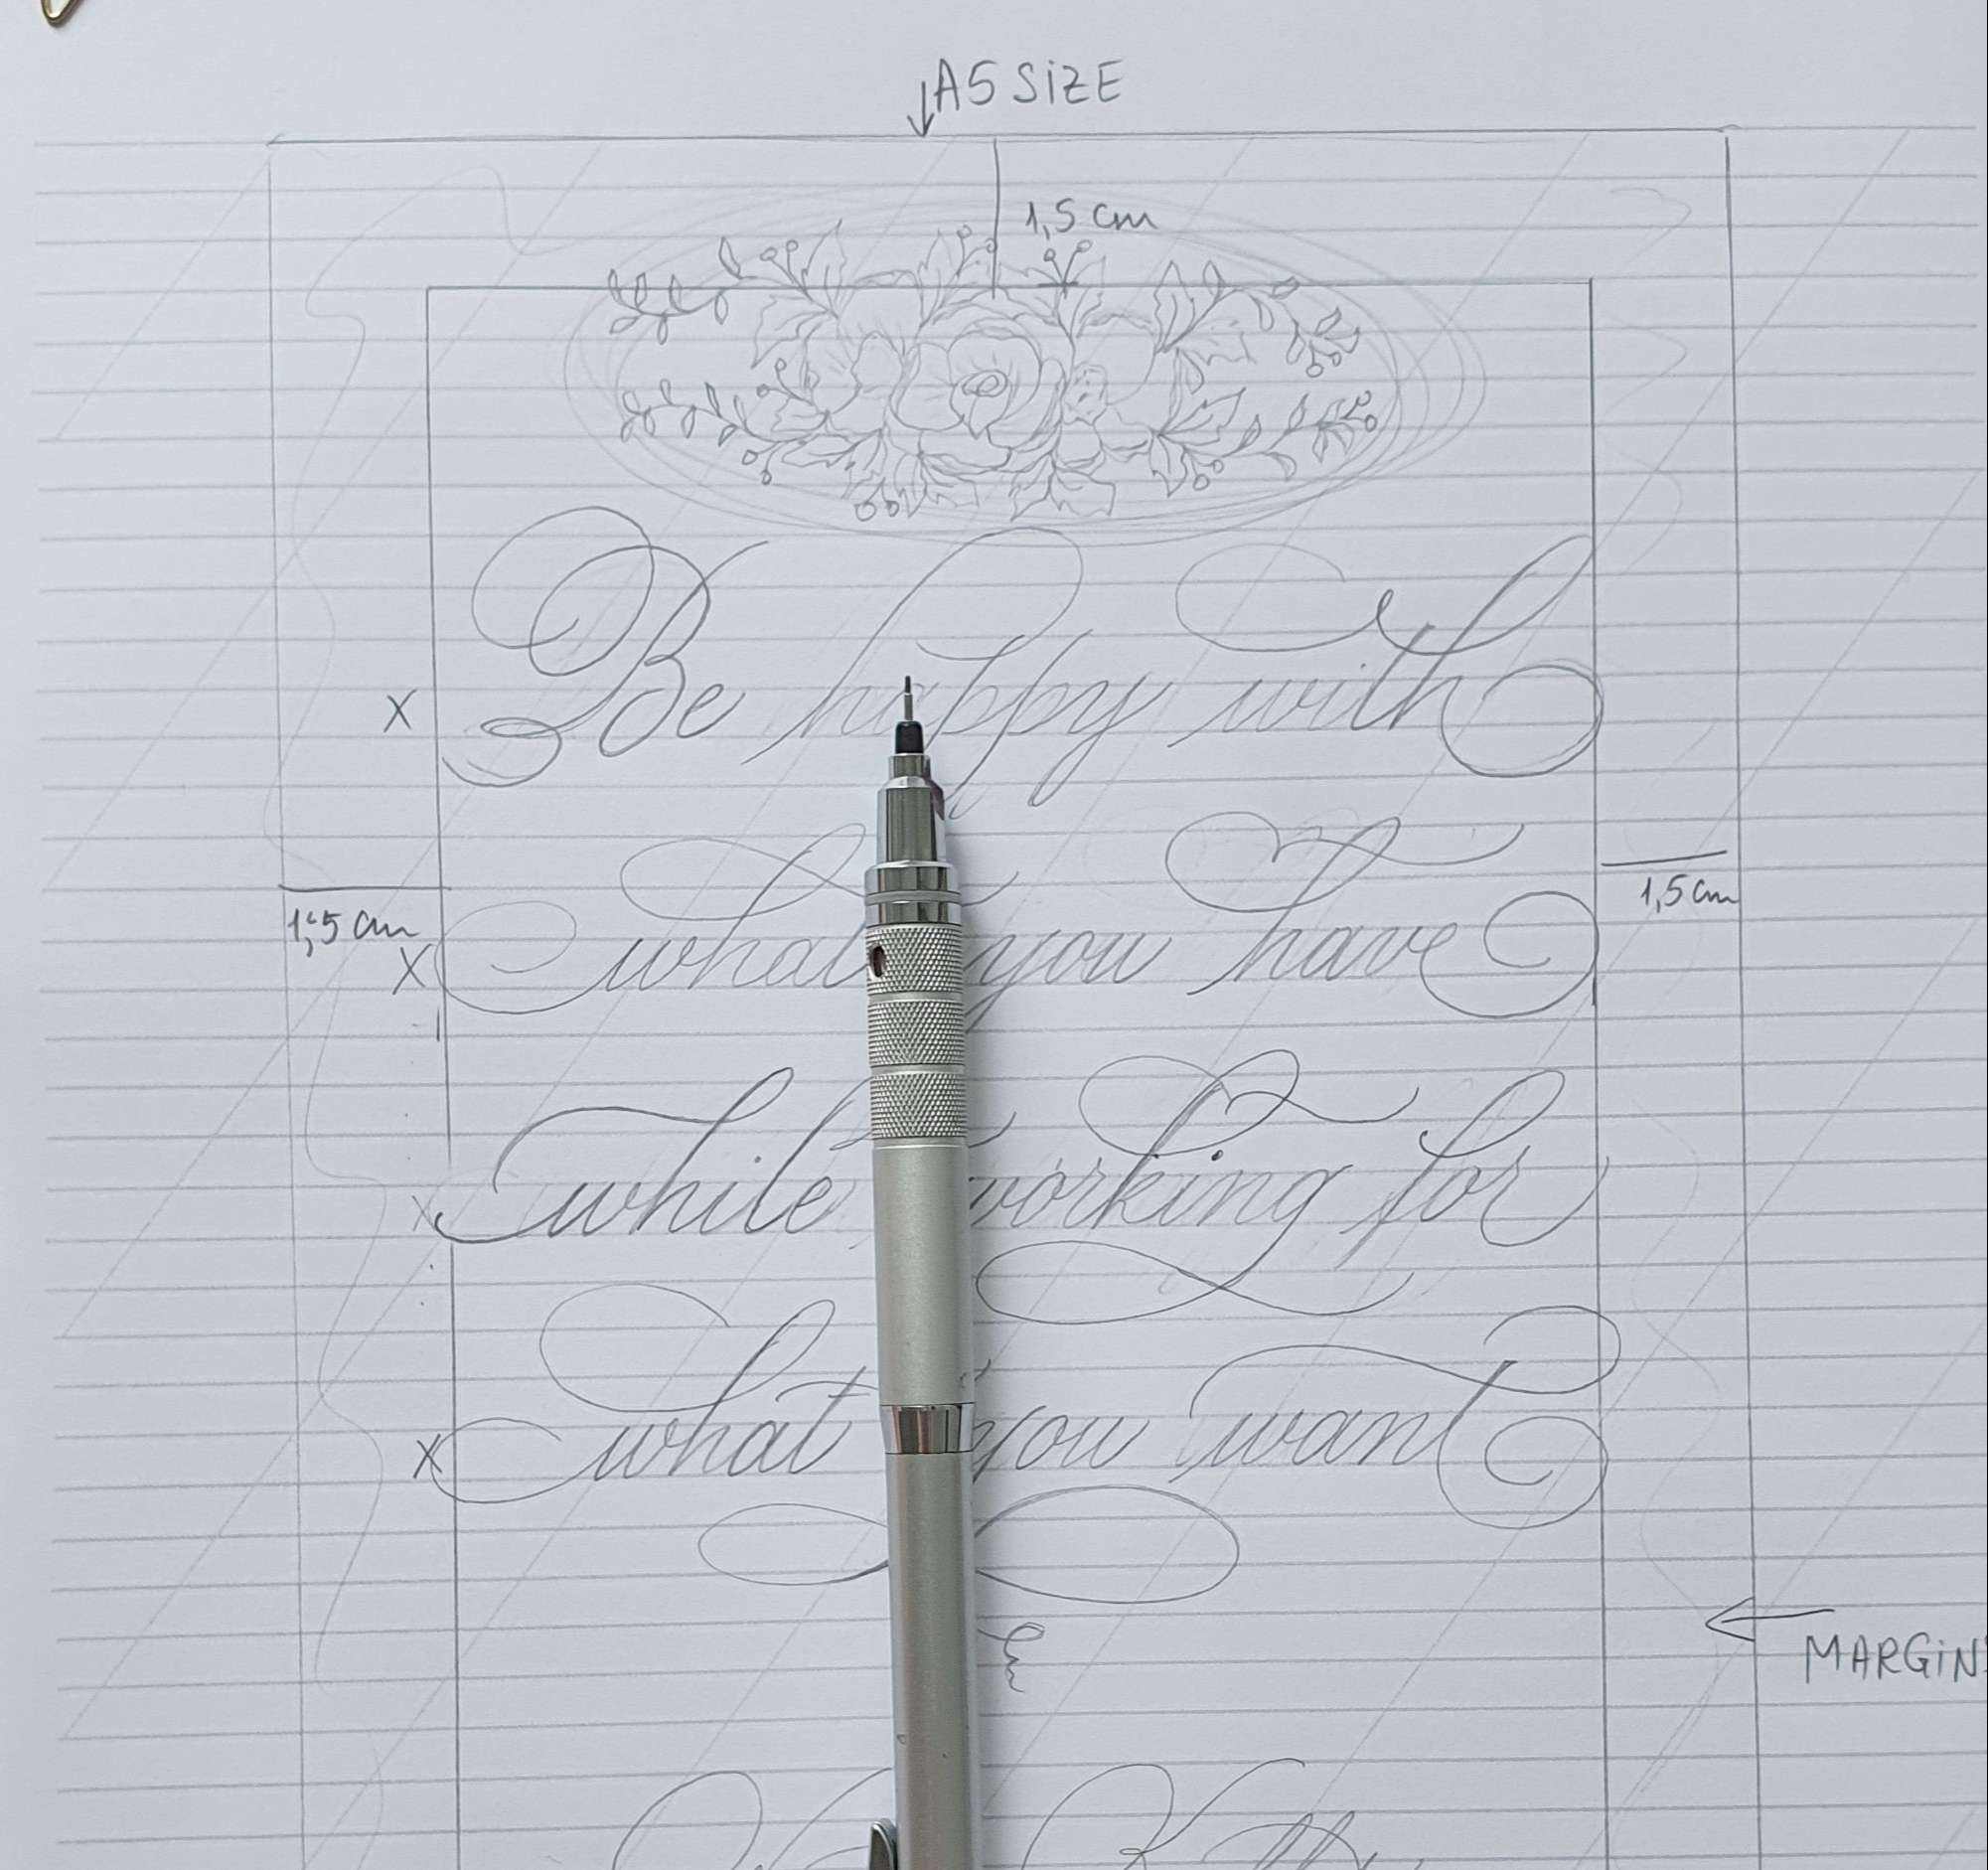 A5 SiZE
1,5 cm
Be happy with
X
1,5 cm
what you have
1,5 cm
X
while working for
X
what you want
X
MARGiN